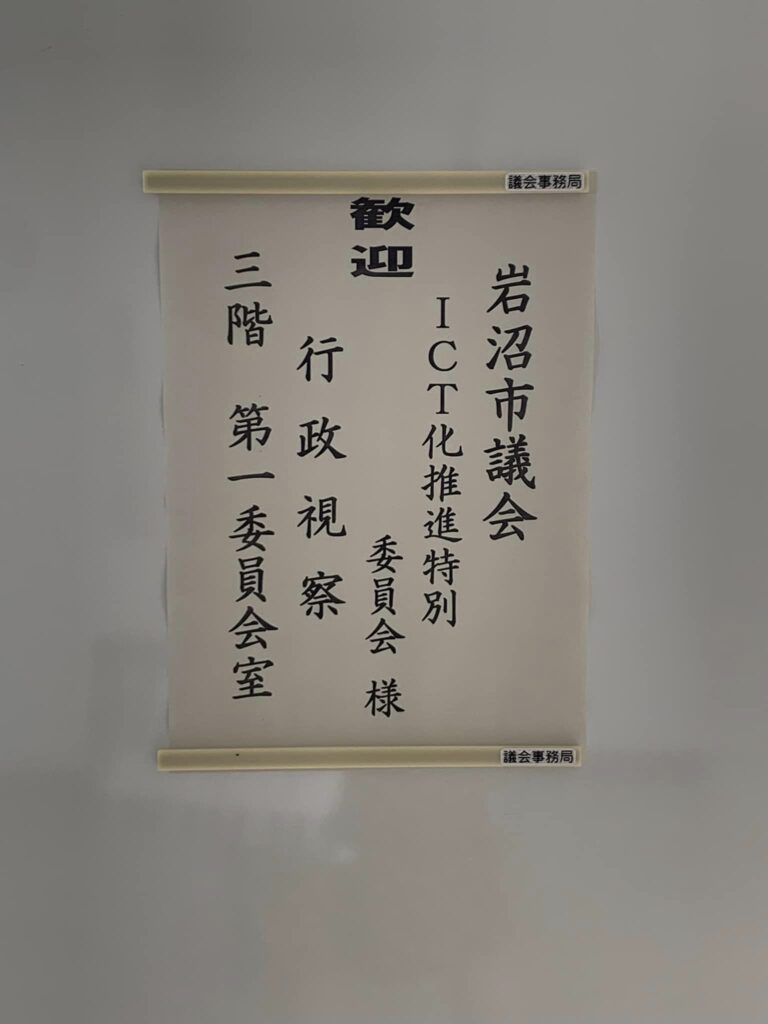 議会事務局
歓迎
岩沼市議会
ICT化推進特別
委員会 様
行政視察
三階 第一委員会室
議会事務局